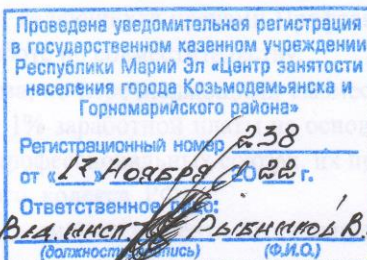 Проведена уведомительная регистрация
в государственном казенном учреждении
Республики Марий Эл «Центр занятости
населения города Козьмодемьянска и
Горномарийского района»
1% заработной
Регистрационный номер 238
от «17» Ноября 2022 г.
Ответственное лицо:
Вед. инсп Рыбников В.
(должность, подпись) (Ф.И.О.)